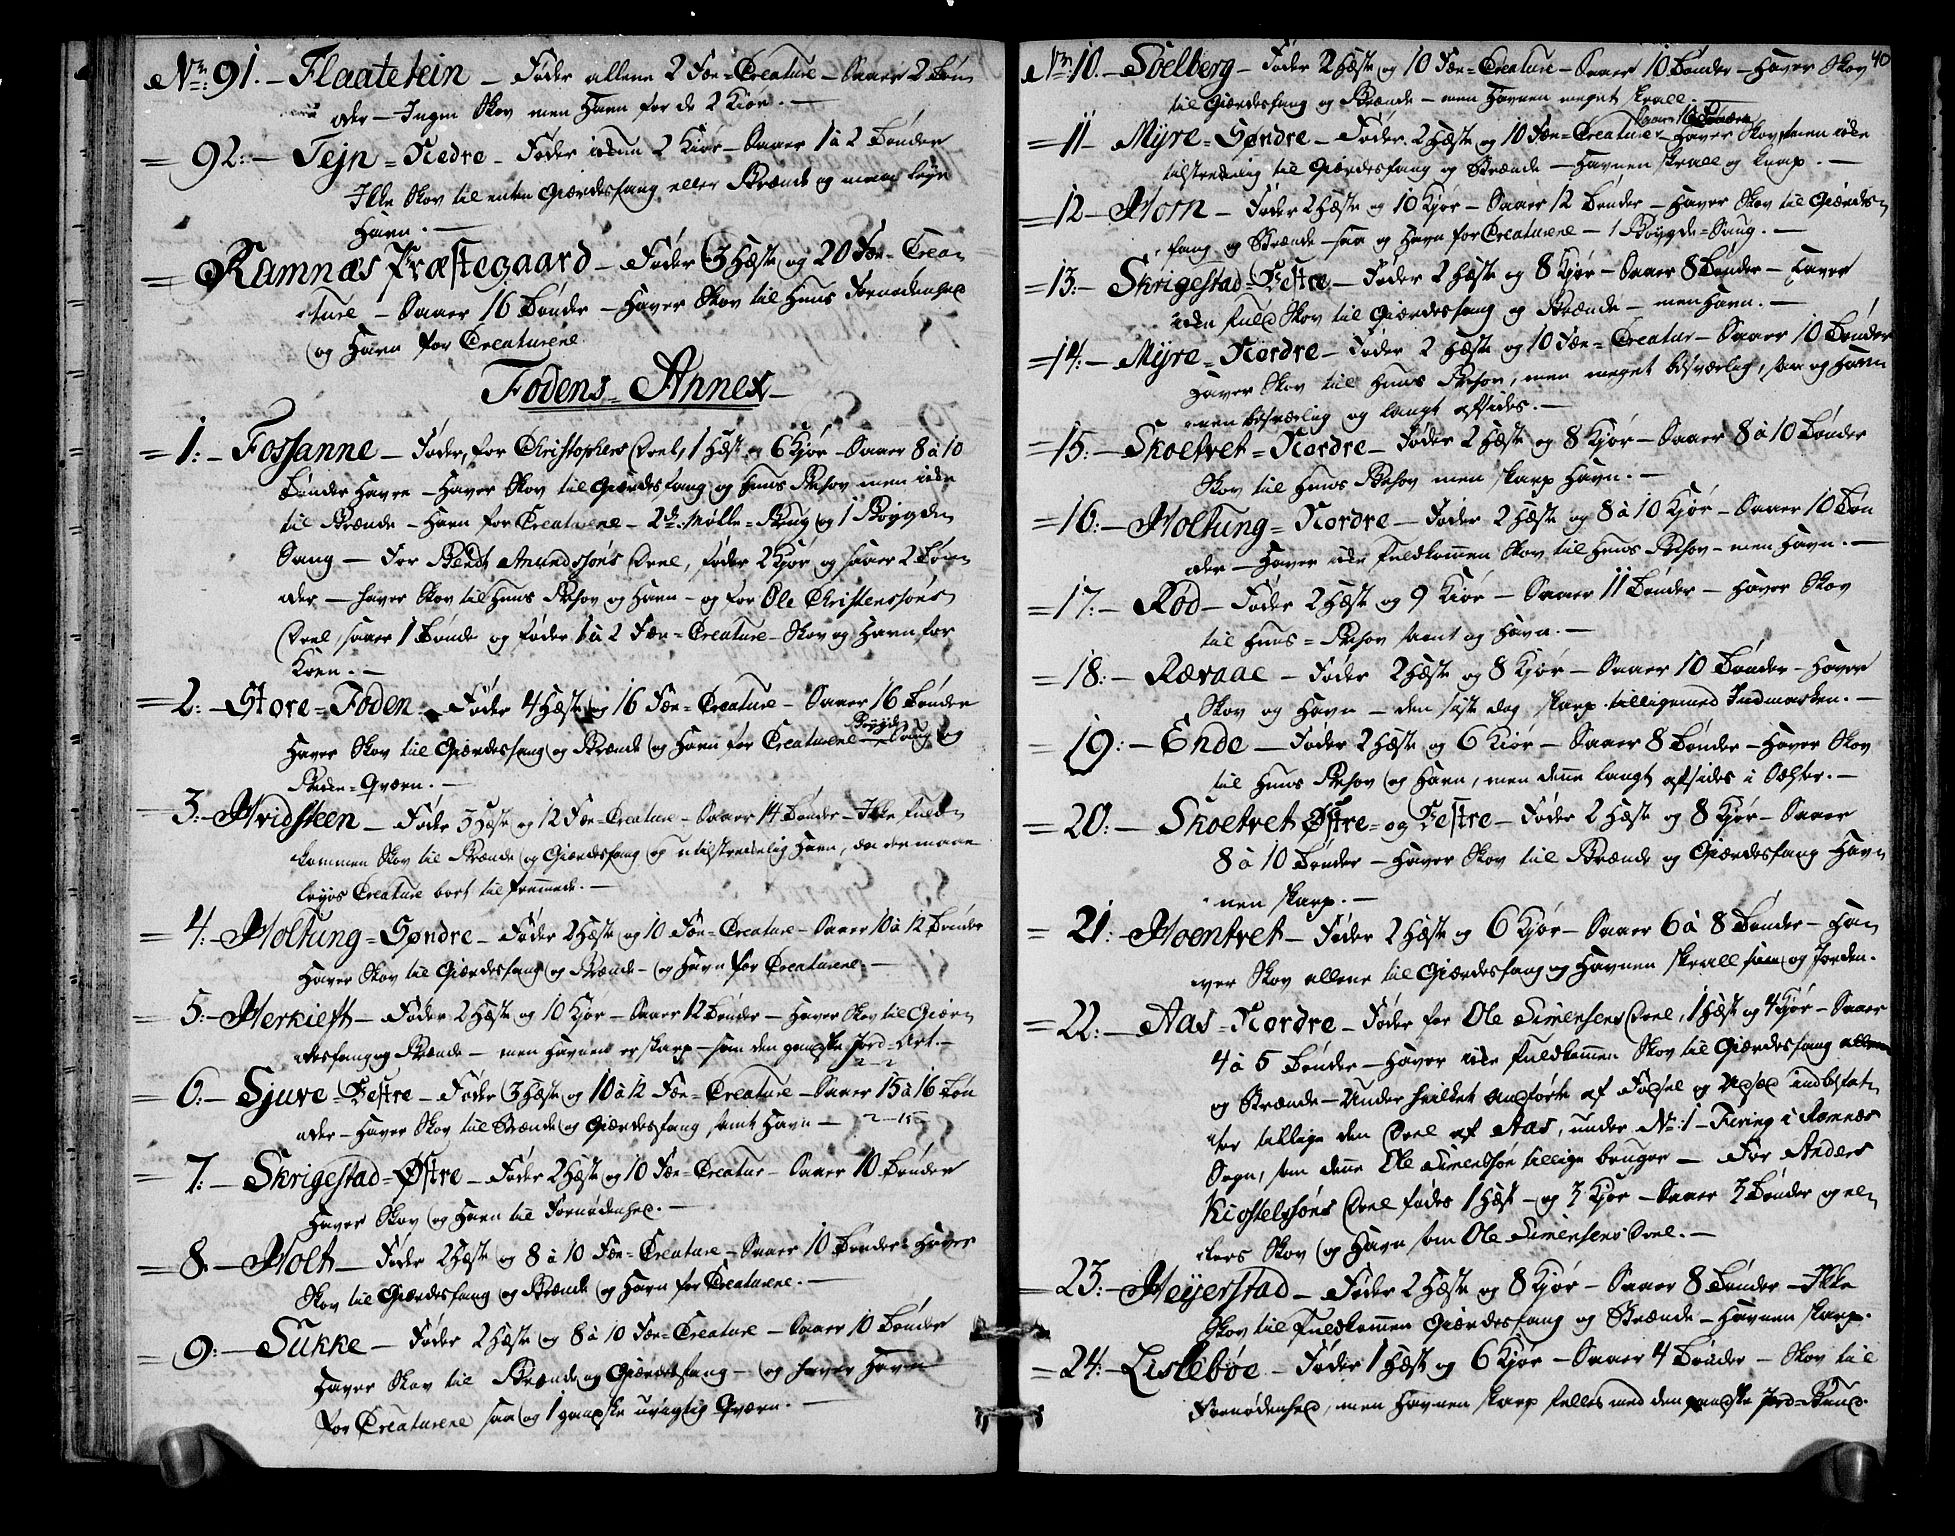 No: 91. – Flaatetein – Føder allene 2 Fæe=Creature – Saaer 2 Tøn
der – Ingen Skov men Havn for de 2 Kiør. –
= 92: – Tejn=Nedre – Føder 2 Kiør – Saaer 1 à 2 Tønder
Ikke Skov til enten Giærdesfang eller Brænde og maae løye
Havn. –
= Ramnæs Præstegaard – Føder 3 Hæste og 20 Fæe=Crea=
ture – Saaer 16 Tønder – Haver Skov til Huus Fornødenhed
og Havn for Creaturene
Fodens Annex –
= 1: – Fossanne – Føder, for Christophers Deel, 1 Hæst og 6 Kiør – Saaer 8 à 10
Tønder Havre – Haver Skov til Giærdesfang og Huus Behov men icke
til Brænde – Havn for Creaturene – 2de Mølle=Brug og 1 Bøygde
Saug – For Bendt Amundssøns Deel, føder 2 Kiør og saaer 2 Tøn=
der – haver Skov til Huus Behov og Havn – og for Ole Christenssøns
Deel, saaer 1 Tønde og føder 1 à 2 Fæe=Creature – Skov og Havn for
Koen. –
= 2: – Store=Foden – Føder 4 Hæste og 16 Fæe=Creature – Saaer 16 Tønder
Haver Skov til Giærdesfang og Brænde og Havn for Creaturene – Bøygde Saug og
Bække=Qværn. –
= 3: – Hvidsteen – Føder 3 Hæste og 12 Fæe=Creature – Saaer 14 Tønder – Ikke fuld=
kommen Skov til Brænde og Giærdesfang og utilstrækkelig Havn, da der maae
løyes Creature bort til fremmede. –
= 4: – Holtung=Søndre – Føder 2 Hæste og 10 Fæe=Creature – Saaer 10 à 12 Tønder
Haver Skov til Giærdesfang og Brænde – og Havn for Creaturene –
= 5: – Herkieft – Føder 2 Hæste og 10 Kjør – Saaer 12 Tønder – Haver Skov til Giær=
desfang og Brænde – men Havnen er skarp – som den ganske Jord=Art. –
= 6: – Sjuve=Vestre – Føder 3 Hæste og 10 à 12 Fæe=Creature – Saaer 15 à 16 Tøn
der – Haver Skov til Brænde og Giærdesfang samt Havn –
= 7: – Skrigestad=Østre – Føder 2 Hæste og 10 Fæe=Creatur – Saaer 10 Tønder
Haver Skov og Havn til Fornødenhed. –
= 8: – Holt – Føder 2 Hæste og 8 à 10 Fæe=Creature – Saaer 10 Tønder – Haver
Skov til Giærdesfang og Brænde og Havn for Creaturene. –
= 9: – Sukke – Føder 2 Hæste og 8 à 10 Fæe=Creature – Saaer 10 Tønder
Haver Skov til Brænde og Giærdesfang – og haver Havn
for Creaturene saa og 1 ganske uvigtig Qværn. –
40
No: 10. – Solberg – Føder 2 Hæste og 10 Fæe=Creature – Saaer 10 Tønder – Haver Skov
til Giærdesfang og Brænde – men Havnen meget skrall. –
Saaer 10 Tønder
= 11 – Myre=Søndre – Føder 2 Hæste og 10 Fæe=Creatur – Haver Skov men icke
tilstrekelig til Giærdesfang og Brænde – Havnen skrall og knap. –
= 12 – Horn – Føder 2 Hæste og 10 Kjør – Saaer 12 Tønder – Haver Skov til Giærdes=
fang og Brænde – saa og Havn for Creaturene – 1 Bøygde=Saug. –
= 13: – Skrigestad=Vestre – Føder 2 Hæste og 8 Kjør – Saaer 8 Tønder – Haver
icke fuld Skov til Giærdesfang og Brænde – men Havn. –
= 14: – Myre=Nordre – Føder 2 Hæste og 10 Fæe=Creatur – Saaer 10 Tønder
Haver Skov til Huus Behov, men meget besværlig, saa og Havn
men besværlig og langt afsides. –
= 15: – Skoetvet=Nordre – Føder 2 Hæste og 8 Kjør – Saaer 8 à 10 Tønder
Skov til Huus Behov men skarp Havn. –
= 16: – Holtung=Nordre – Føder 2 Hæste og 8 à 10 Kjør – Saaer 10 Tøn
der – Haver icke fuldkommen Skov til Huus Behov – men Havn. –
= 17: – Rød – Føder 2 Hæste og 9 Kiør – Saaer 11 Tønder – Haver Skov
til Huus=Behov samt og Havn. –
= 18: – Rævaae – Føder 2 Hæste og 8 Kjør – Saaer 10 Tønder – Haver
Skov og Havn – den siste dog skarp tilligemed Indmarken. –
= 19: – Ende – Føder 2 Hæste og 6 Kiør – Saaer 8 Tønder – Haver Skov
til Huus Behov og Havn, men denne langt afsides i –
= 20: – Skoetvet Østre= og Vestre – Føder 2 Hæste og 8 Kjør – Saaer
8 à 10 Tønder – Haver Skov til Brænde og Giærdesfang – Hav=
nen skarp. –
= 21: – Hoentvet – Føder 2 Hæste og 6 Kjør – Saaer 6 à 8 Tønder – Ha=
ver Skov allene til Giærdesfang og Havnen skrall som og Jorden.
= 22: – Aas=Nordre – Føder for Ole Simensens Deel, 1 Hæst og 4 Kjør – Saaer
4 à 5 Tønder – Haver icke fuldkommen Skov til Giærdesfang allene
og Brænde – Under hvilket anførte af Fødsel og Udsæd indbefat=
ter tillige den Deel af Aas, under No: 1 – i Ramnæs
Sogn, som denne Ole Simenssøn tillige bruger – For Anders
Kiostelssøns Deel fødes 1 Hæst – og 3 Kjør – Saaer 3 Tønder og el=
lers Skov og Havn som Ole Simensens Deel. –
= 23: – Heyerstad – Føder 2 Hæste og 8 Kjør – Saaer 8 Tønder – Ikke
Skov til fuldkommen Giærdesfang og Brænde – Havnen skarp.
= 24: – Lislebøe – Føder 1 Hæst og 6 Kjør – Saaer 4 Tønder – Skov til
Fornødenhed, men Havnen skarp felles med den ganske Jord=Bund.